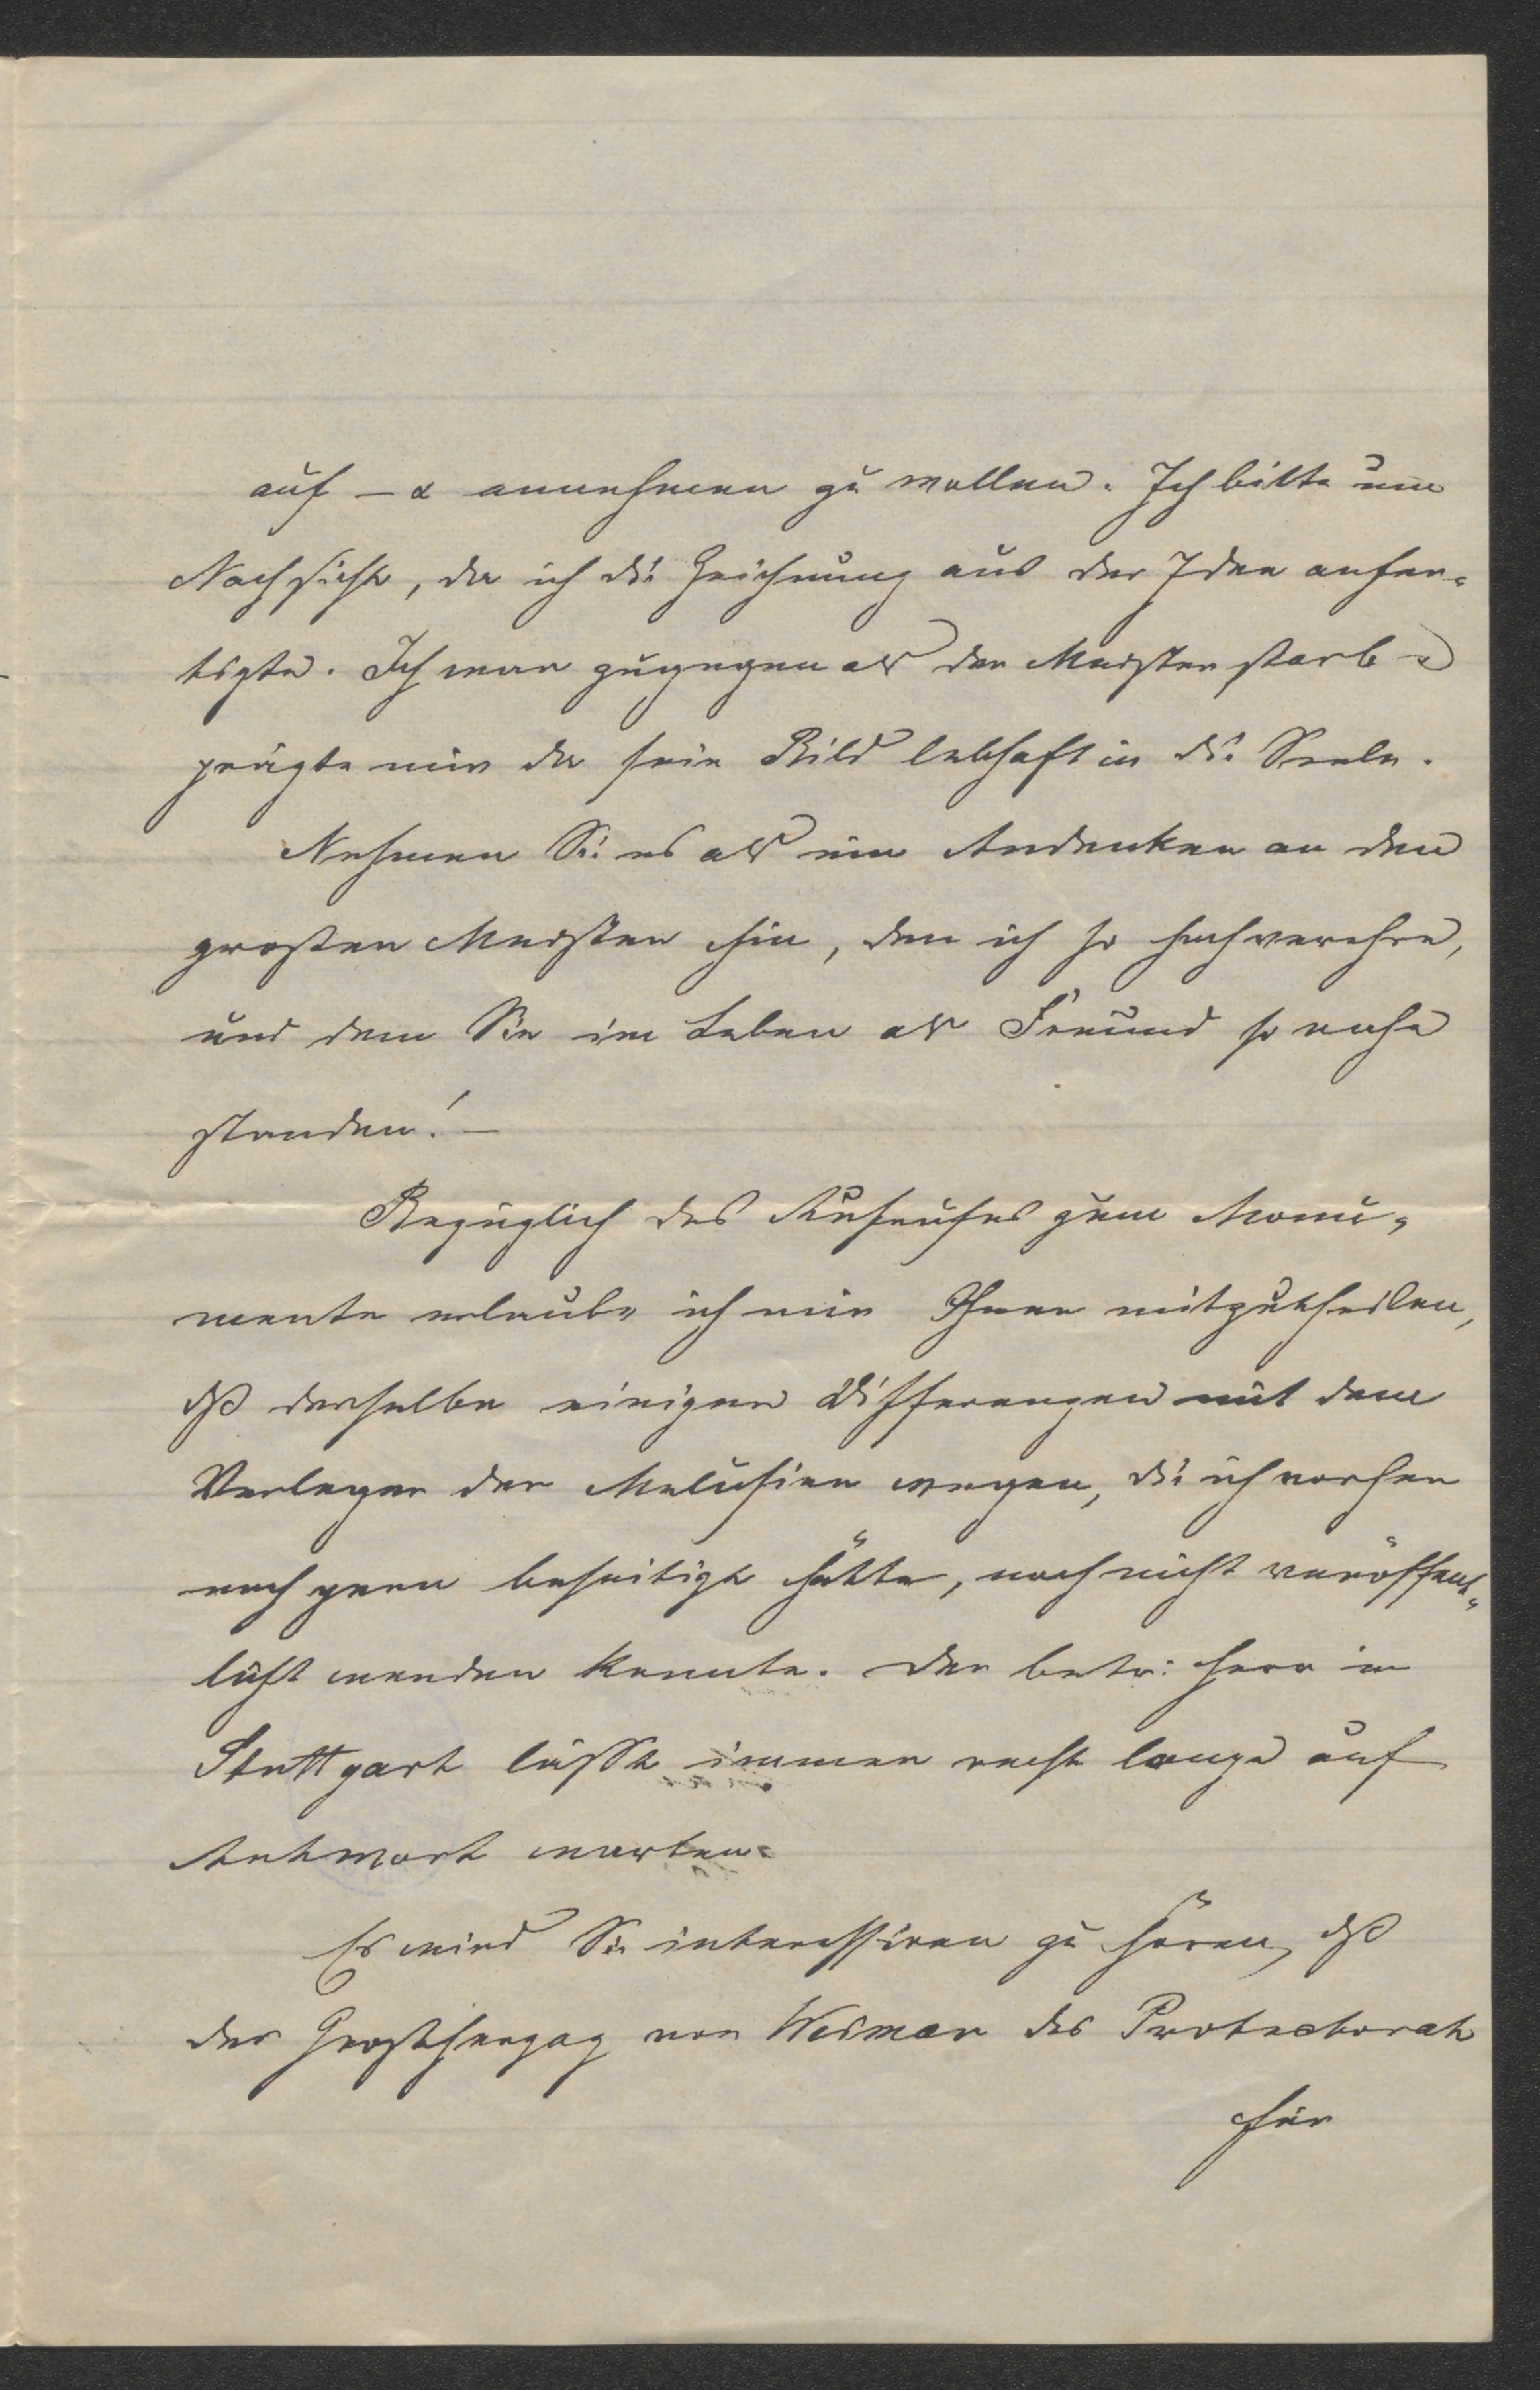 auf – & annehmen zu wollen. Ich bitte um
Nachsicht, da ich die Zeichnung aus der Idee anfer=
tigte. Ich war zugegen als der Meister starb &
prägte mir da sein Bild lebhaft in die Seele.
Nehmen Sie es als ein Andenken an den
großen Meister hin, den ich so hochverehre,
und dem Sie im Leben als Freund so nahe
standen! –
Bezüglich des Aufrufes zum Monu=
mente erlaube ich mir Ihnen mitzutheilen,
dß derselbe einiger Differenzen mit dem
Verleger der Melusine wegen, die ich vorher
noch gern beseitigt hätte, noch nicht veröffent=
licht werden konnte. Der betr: Herr in
Stuttgart läßt immer recht lange auf
Antwort warten.
Es wird Sie interessiren zu hören, dß
der Großherzog von Weimar das Protectorat
für